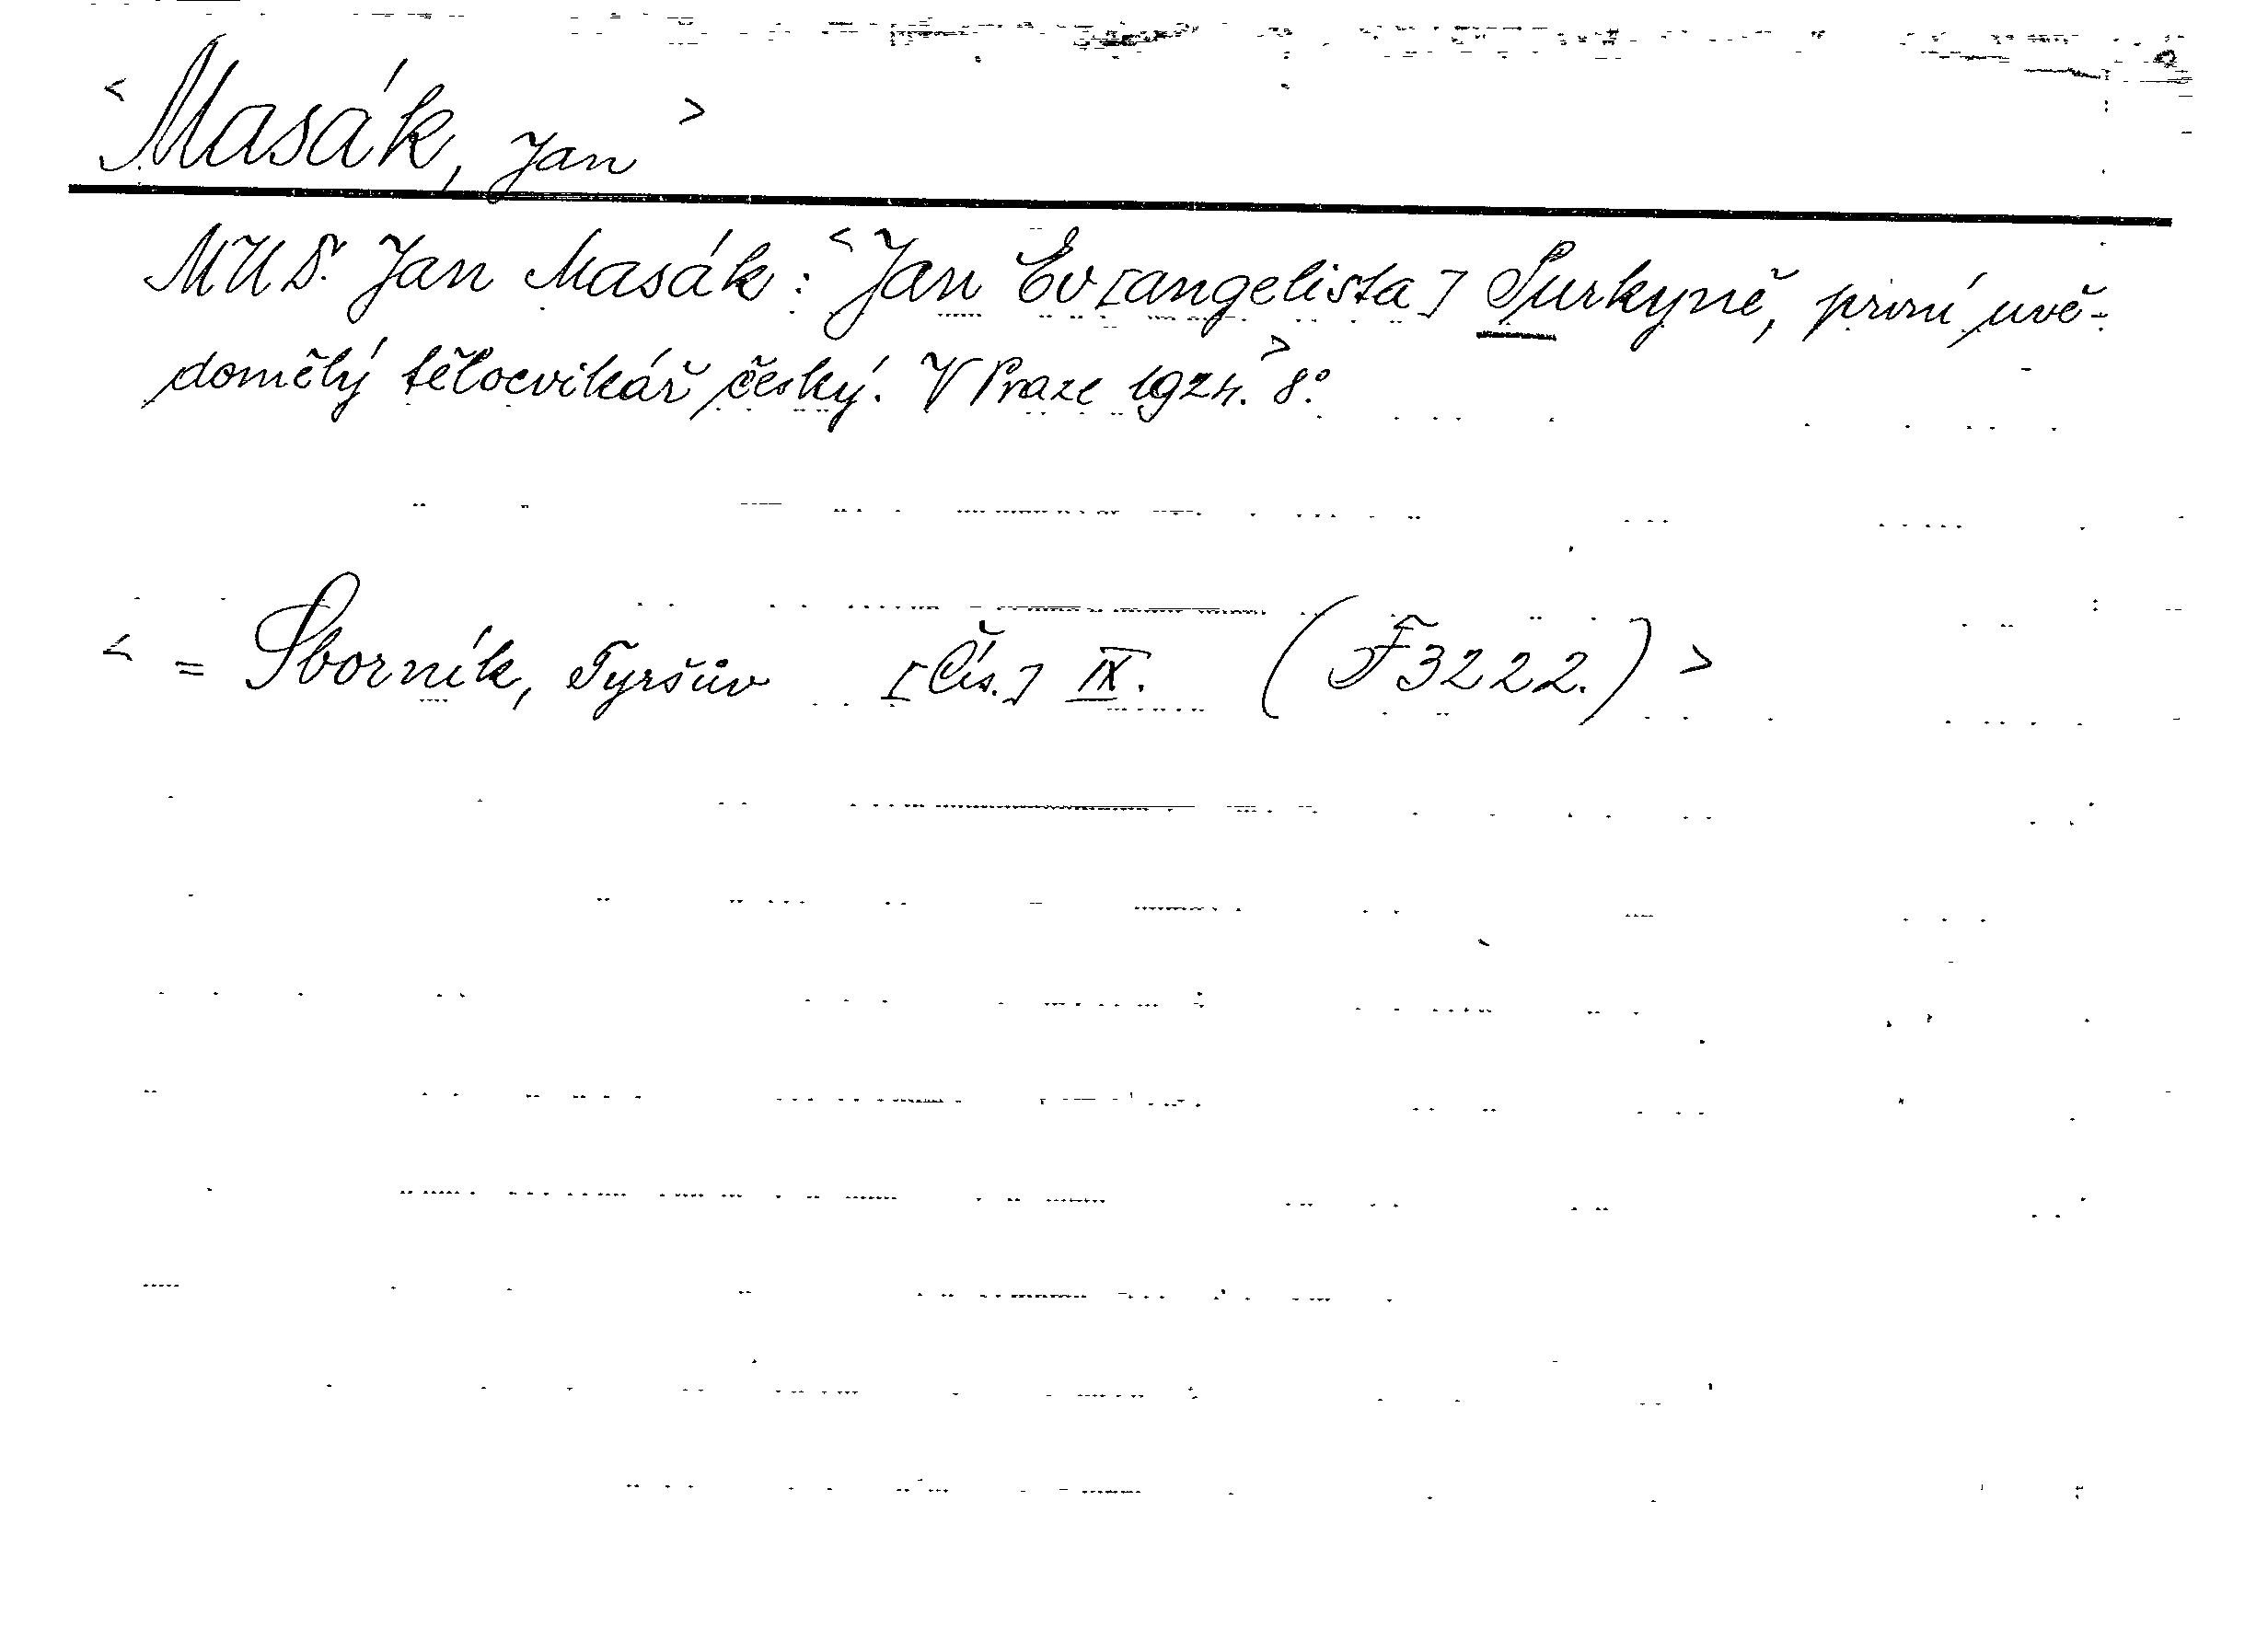 <Masák, Jan>
MUDr. Jan Masák: <Jan Ev[angelista] Purkyně, první uvě-
domělý tělocvikář český. V Praze 1924.> 8°.
< = Sborník, Tyršův [Čís.] IX. (F 3222.) >